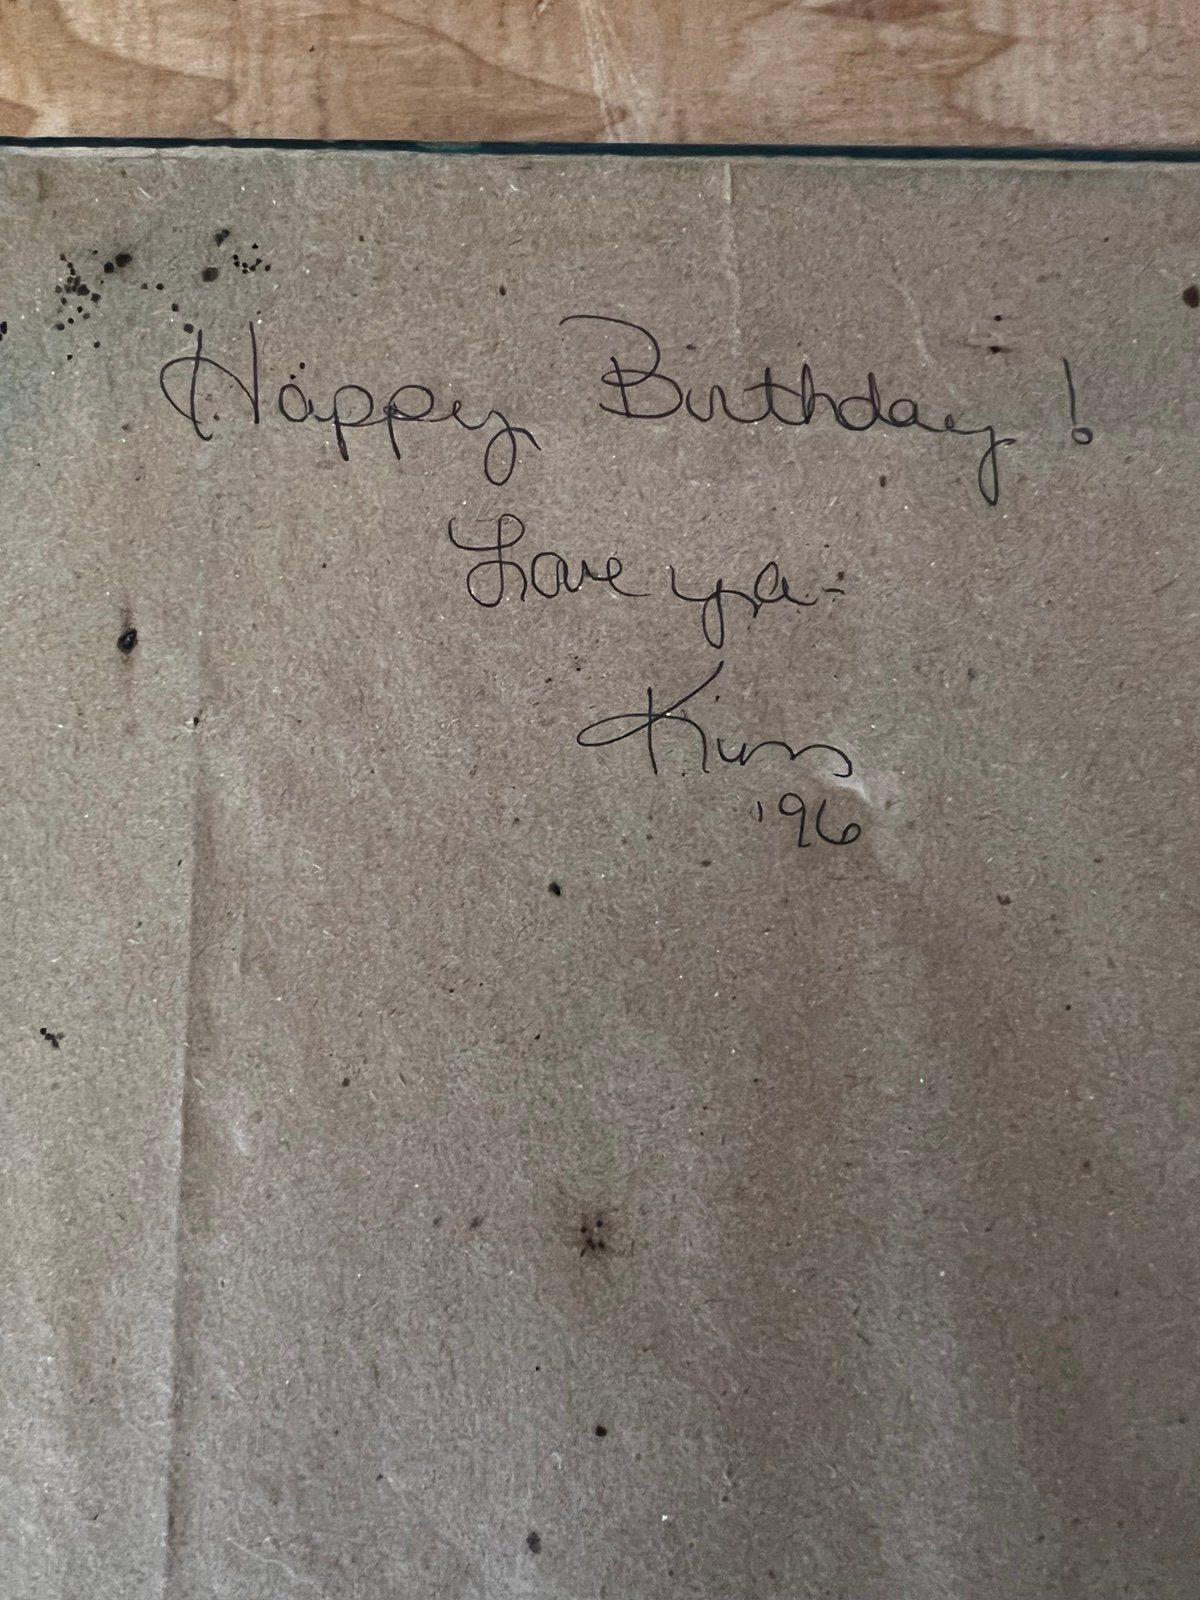 Happy Birthday!
Love ya-
Kim
'96